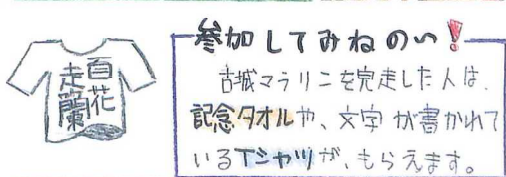 百花
走蘭
参加してみねのい!
古城マラリニを完走した人は、
記念タオルや、文字が書かれて
いるTシャツが、もらえます。